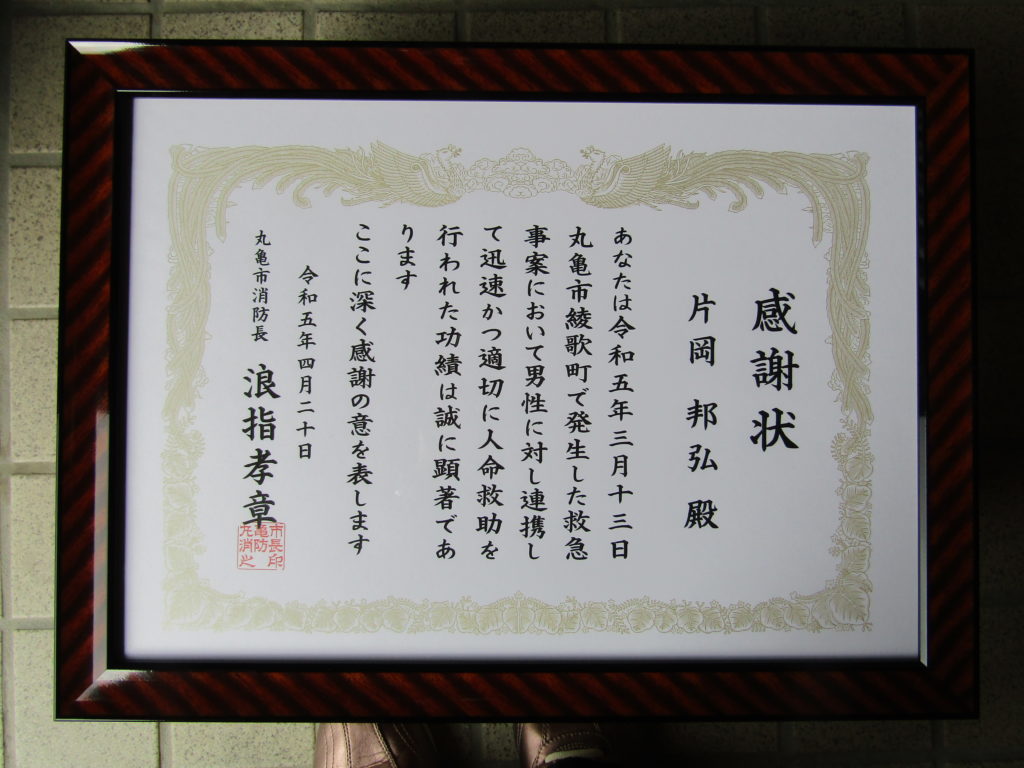 感謝状
片岡 邦弘 殿
あなたは令和五年三月十三日
丸亀市綾歌町で発生した救急
事案において男性に対し連携し
て迅速かつ適切に人命救助を
行われた功績は誠に顕著であ
ります
ここに深く感謝の意を表します
令和五年四月二十日
丸亀市消防長 浪指孝章
市長印
亀防
丸消之